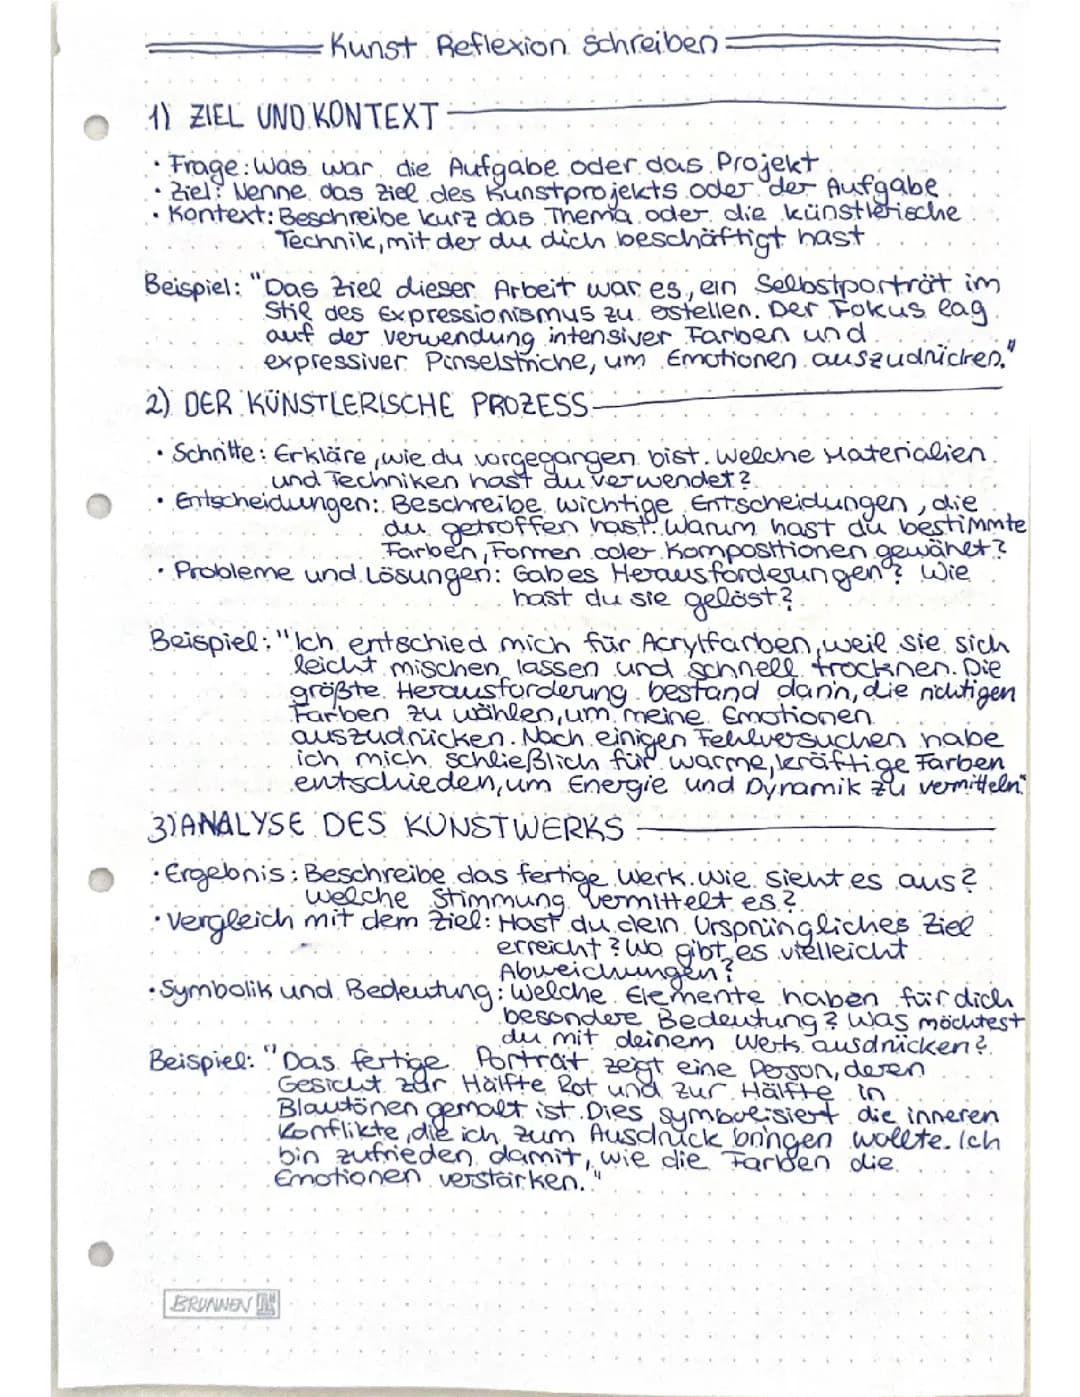 Kunst Reflexion schreiben
1) ZIEL UND KONTEXT
• Frage: Was war die Aufgabe oder das Projekt
• Ziel: Nenne das Ziel des Kunstprojekts oder der Aufgabe
• Kontext: Beschreibe kurz das Thema oder die künstlerische
Technik, mit der du dich beschäftigt hast
Beispiel: "Das Ziel dieser Arbeit war es, ein Selbstporträt im
Stil des Expressionismus zu erstellen. Der Fokus lag
auf der verwendung intensiver Farben und
expressiver Pinselstriche, um Emotionen auszudrücken."
2) DER KÜNSTLERISCHE PROZESS
• Schritte: Erkläre, wie du vorgegangen bist. Welche Materialien
und Techniken hast du verwendet?
• Entscheidungen: Beschreibe wichtige Entscheidungen, die
du getroffen hast. Warum hast du bestimmte
Farben, Formen oder Kompositionen gewählt?
• Probleme und Lösungen: Gab es Herausforderungen? Wie
hast du sie gelöst?
Beispiel: "Ich entschied mich für Acrylfarben, weil sie sich
leicht mischen lassen und schnell trocknen. Die
größte Herausforderung bestand darin, die richtigen
Farben zu wählen, um meine Emotionen
auszudrücken. Nach einigen Fehlversuchen habe
ich mich schließlich für warme, kräftige Farben
entschieden, um Energie und Dynamik zu vermitteln."
3) ANALYSE DES KUNSTWERKS
• Ergebnis: Beschreibe das fertige Werk. Wie sieht es aus?
Welche Stimmung vermittelt es?
• Vergleich mit dem Ziel: Hast du dein Ursprüngliches Ziel
erreicht? Wo gibt es vielleicht
Abweichungen?
• Symbolik und Bedeutung: Welche Elemente haben für dich
besondere Bedeutung? Was möchtest
du mit deinem Werk ausdrücken?
Beispiel: "Das fertige Porträt zeigt eine Person, deren
Gesicht zur Hälfte Rot und zur Hälfte in
Blautönen gemalt ist. Dies symbolisiert die inneren
Konflikte, die ich zum Ausdruck bringen wollte. Ich
bin zufrieden damit, wie die Farben die
Emotionen verstärken."
BRUNNEN